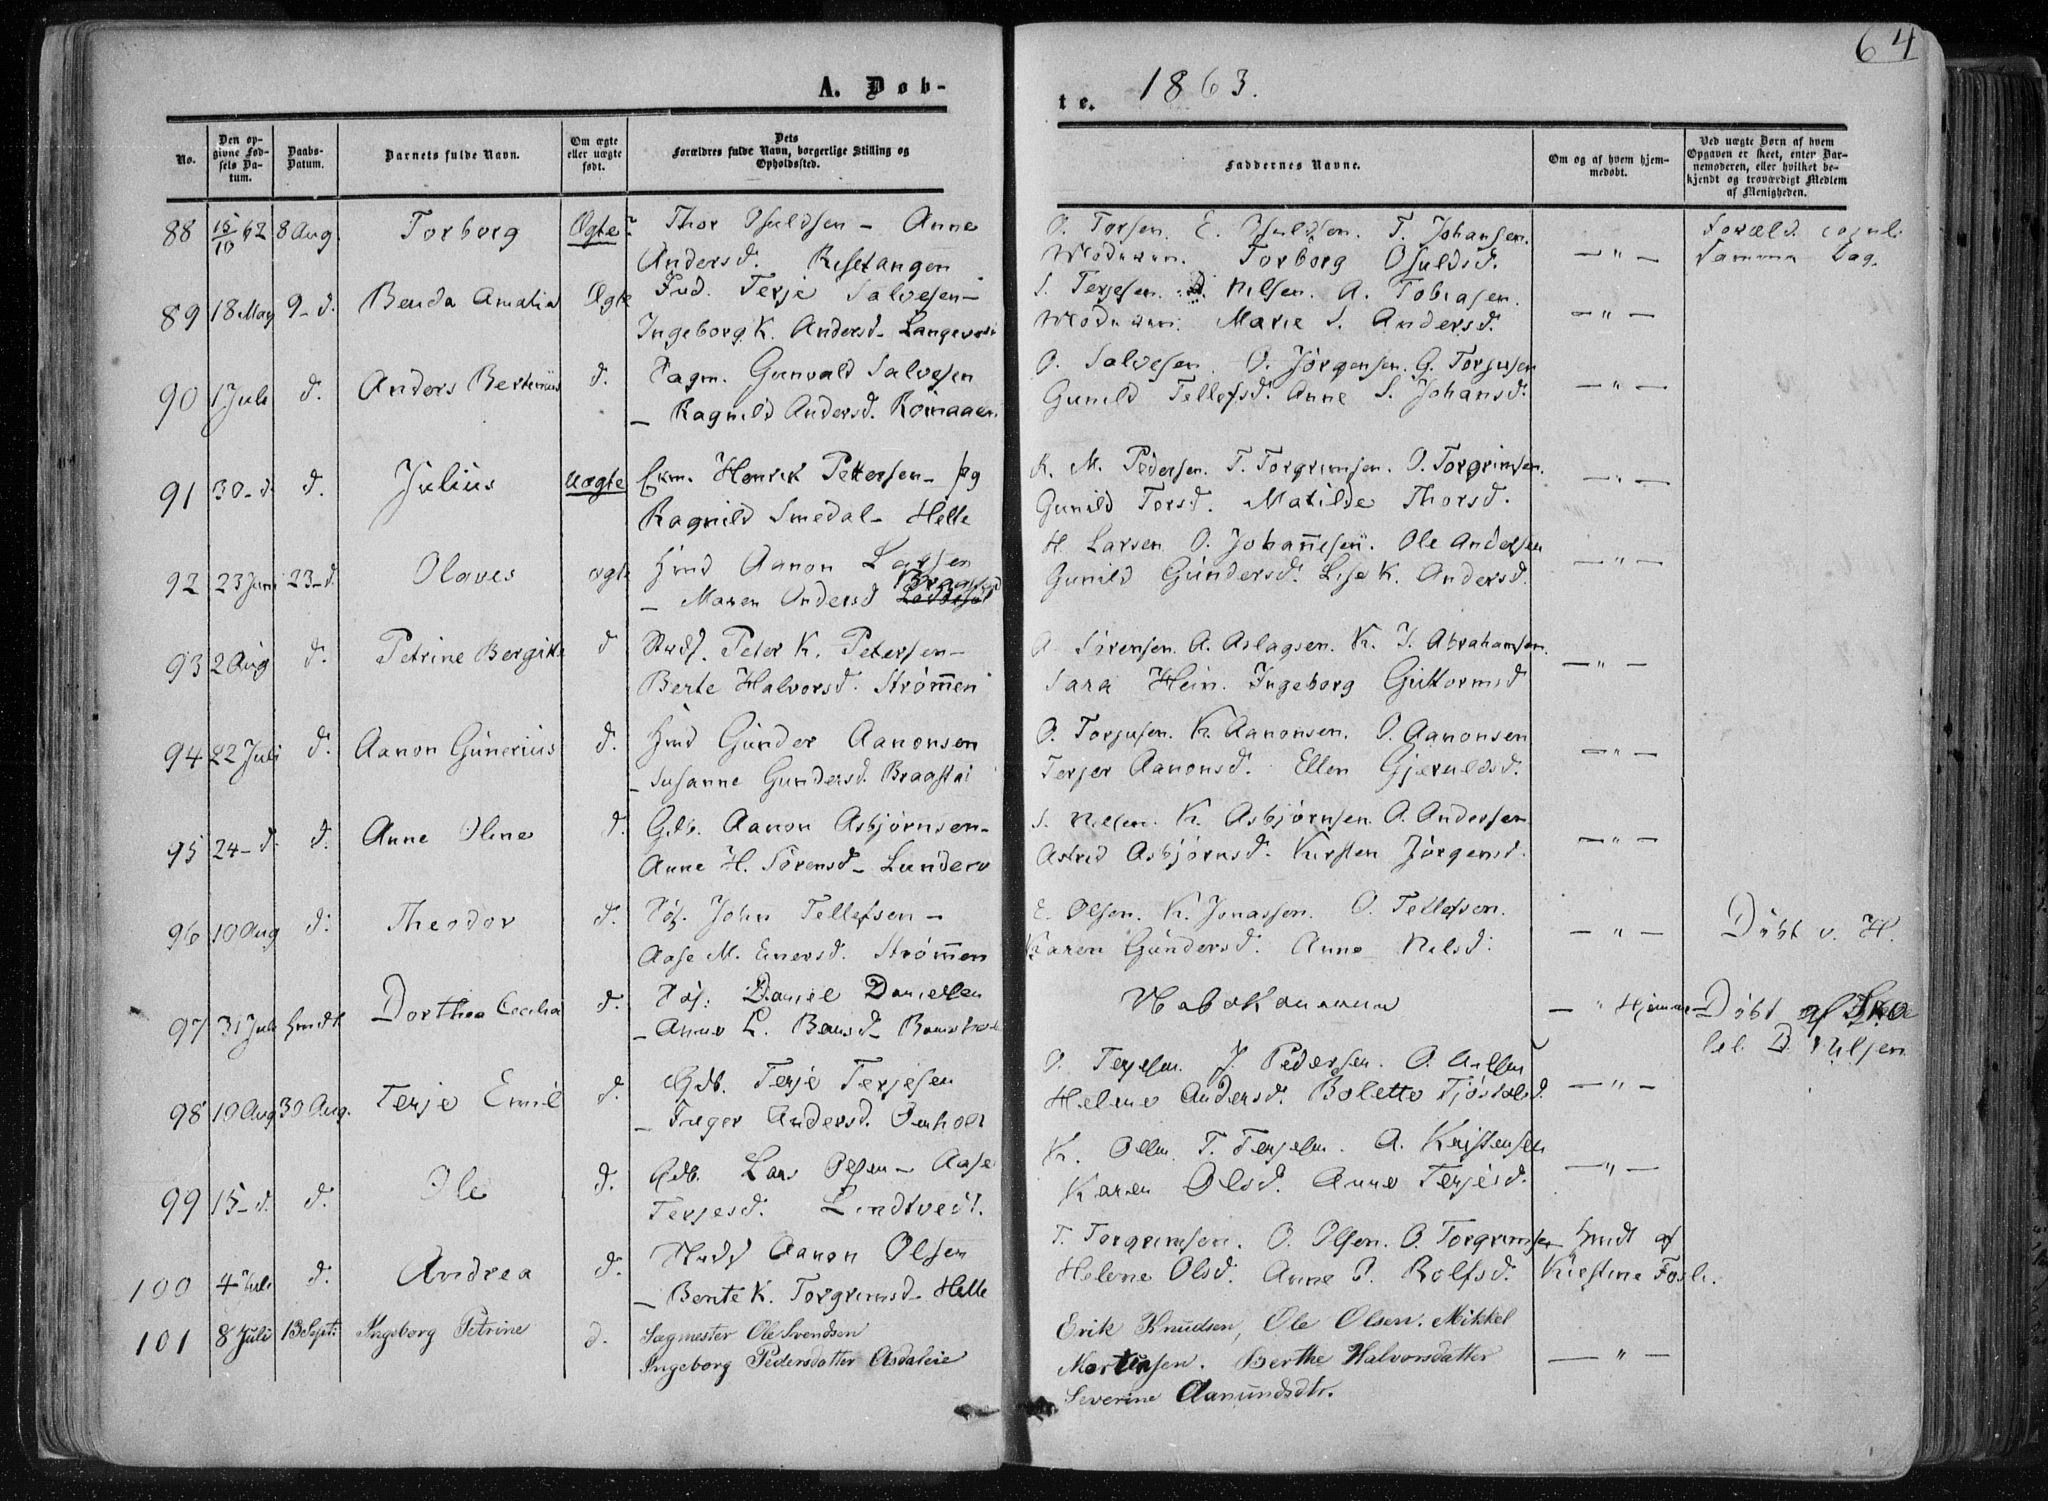 64
A. Døb-
te.
1863.
No.
Den op-
givne Fød-
sels Da-
tum.
Daabs-
Datum.
Barnets fulde Navn.
Om ægte
eller uægte
født.
Dets
Forældres fulde Navn, borgerlige Stilling og
Opholdssted.
Faddernes Navne.
Om og af hvem hjem-
medøbt.
Ved uægte Børn af hvem
Opgaven er skeet, enten Bar-
nemoderen, eller hvilket be-
kjendt og troværdigt Medlem
af Menigheden.
88 15/10 62 8 Aug. Torborg Ægte Thor Osuldsen - Anne
Andersd. Risetangen
O. Torsen. E. Osuldsen. T. Johansen.
Moderen. Torborg Osuldsd. — " —
Foræld.
Samme Dag.
89 18 May 9 - d. Benda Amalia Ægte Ind. Terje Salvesen -
Ingeborg K. Andersd -
S. Terjesen. Nilsen. A. Tobiasen.
Moderen. Marie S. Andersd. — " —
90 1 Juli d. Anders d. Gunvald Salvesen
- Ragnild Andersd.
O. Salvesen. O. Jørgensen. G. Torjusen
Gunild Tellefsd. Anne S. Johansd. — " —
91 30 - d. d. Julius uægte Henrik Pettersen - pg
Ragnild Smedal - Helle
K. M. Pedersen. T. Torgrimsen. O. Torgrimsen.
Gunild Torsd. Matilde Thorsd. — " —
92 23 Juni 23 - d. Olaves ægte Hmd Aanon Larsen
- Maren Andersd
H. Larsen O. Johannesen. Ole Andersen
Gunild Gundersd. Lise K. Andersd. — " —
93 2 Aug d. Petrine Bergitte d Peter K. Petersen -
Berte Halvorsd. Strømmen
A. Sørensen. A. Aslagsen. K. J. Abrahamsen.
Sara Hein. Ingeborg Guttormsd — " —
94 22 Juli d. Aanon Gunerius d. Hmd Gunder Aanonsen
- Susanne Gundersd. Braastai
O. Torjusen. K. Aanonsen. O. Aanonsen
Terjer Aanonsd. Ellen Gjeruldsd. — " —
95 24 - d. d. Anne Oline d. Gdb. Aanon Asbjørnsen -
Anne H. Sørensd -
S. Nilsen. K. Asbjørnsen. A. Andersen
Astrid Asbjørnsd. Kirsten Jørgensd. — " —
96 10 Aug d. Theodor d. Pøs. John Tellefsen -
Aase M. Einersd. Strømmen
E. Olsen. K. Jonassen. O. Tellefsen.
Karen Gundersd. Anne Nilsd. — " —
Døbt v. H.
97 31 Juli Hmdt Dorthea Cecilia d. Pøs: Daniel Danielsen
- Anne L.
— " Hjemme
Døbt af
98 10 Aug 30 Aug. Terje Emil d. Gdb. Terje Terjesen
- Inger Andersd.
O. Terjesen. J. Pedersen. O.
Helene Andersd. Bolette — " —
99 15 - d. d. Ole d. Gdb. Lars Olsen - Aase
Terjesd. Lindtvedt.
K. Olsen. T. Terjesen. A. Kristensen
Karen Olsd. Anne Terjesd. — " —
100 4 Juli d. Andrea d. Aanon Olsen
- Bente K. Torgrimsd - Helle
T. Torgrimsen. O. Olsen. O. Torgrimsen
Helene Olsd. Anne P. Rolfsd.
Hmdt af
Kirstine
101 8 Juli 13 Sept: Ingeborg Petrine d. Sagmester Ole Svendsen
Ingeborg Pedersdatter Asdaleie
Erik Knudsen, Ole Olsen. Mikkel
Mortensen. Berthe Halvorsdatter
Severine Aamundsdtr. — " —